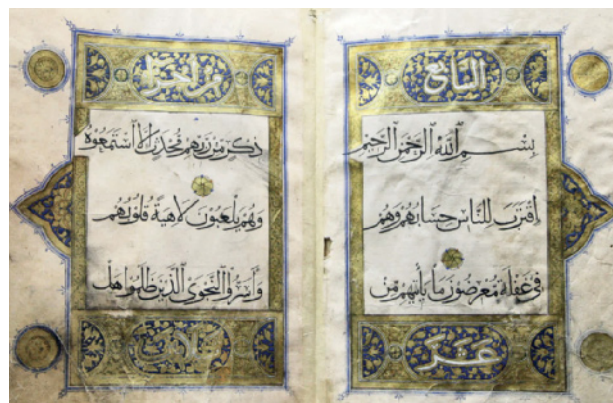 السابع
بِسْمِ اللهِ الرَّحْمٰنِ الرَّحِيمِ
اِقْتَرَبَ لِلنَّاسِ حِسَابُهُمْ وَهُمْ
فِي غَفْلَةٍ مُعْرِضُونَ مَا يَأْتِيهِمْ مِنْ
عشر
ذِكْرٍ مِنْ رَبِّهِمْ مُحْدَثٍ اِلَّا اسْتَمَعُوهُ
وَهُمْ يَلْعَبُونَ لَاهِيَةً قُلُوبُهُمْ
وَأَسَرُّوا النَّجْوَى الَّذِينَ ظَلَمُوا هَلْ